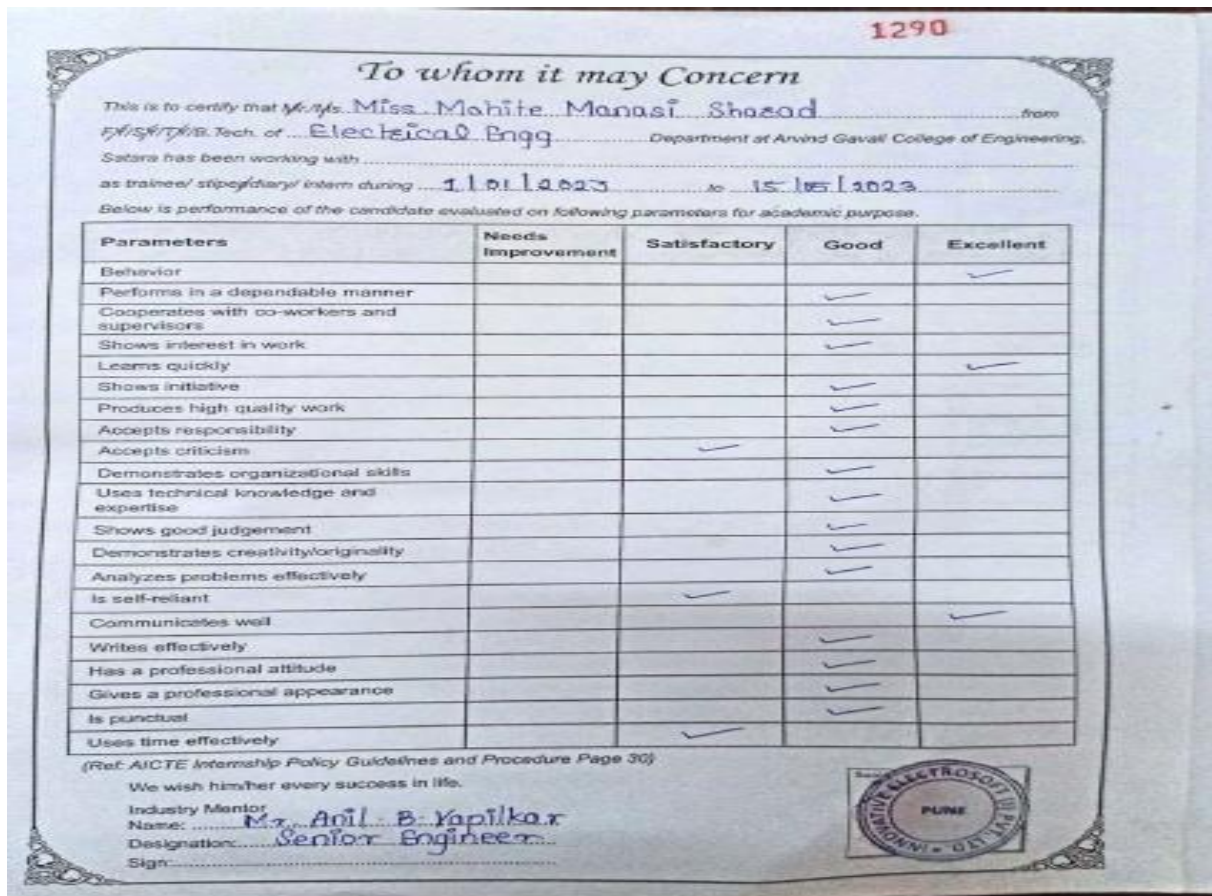 1290
To whom it may Concern
This is to certify that Mr./Ms. Miss. Mohite Manasi Sharad from
F.Y/S.Y/T.Y/B.Tech. of Electrical Engg Department at Arvind Gavali College of Engineering,
Satara has been working with
as trainee/ stipendiary/ intern during 1/01/2023 to 15/05/2023
Below is performance of the candidate evaluated on following parameters for academic purpose.
Parameters Needs Improvement Satisfactory Good Excellent
Behavior ✓
Performs in a dependable manner ✓
Cooperates with co-workers and supervisors ✓
Shows interest in work ✓
Learns quickly ✓
Shows initiative ✓
Produces high quality work ✓
Accepts responsibility ✓
Accepts criticism ✓
Demonstrates organizational skills ✓
Uses technical knowledge and expertise ✓
Shows good judgement ✓
Demonstrates creativity/originality ✓
Analyzes problems effectively ✓
Is self-reliant ✓
Communicates well ✓
Writes effectively ✓
Has a professional attitude ✓
Gives a professional appearance ✓
Is punctual ✓
Uses time effectively ✓
(Ref: AICTE Internship Policy Guidelines and Procedure Page 30)
We wish him/her every success in life.
Industry Mentor
Name: Mr. Anil B. Yapilkar
Designation: Senior Engineer
Sign:
INNOVATIVE ELECTROSOFT (I) PVT. LTD.
PUNE